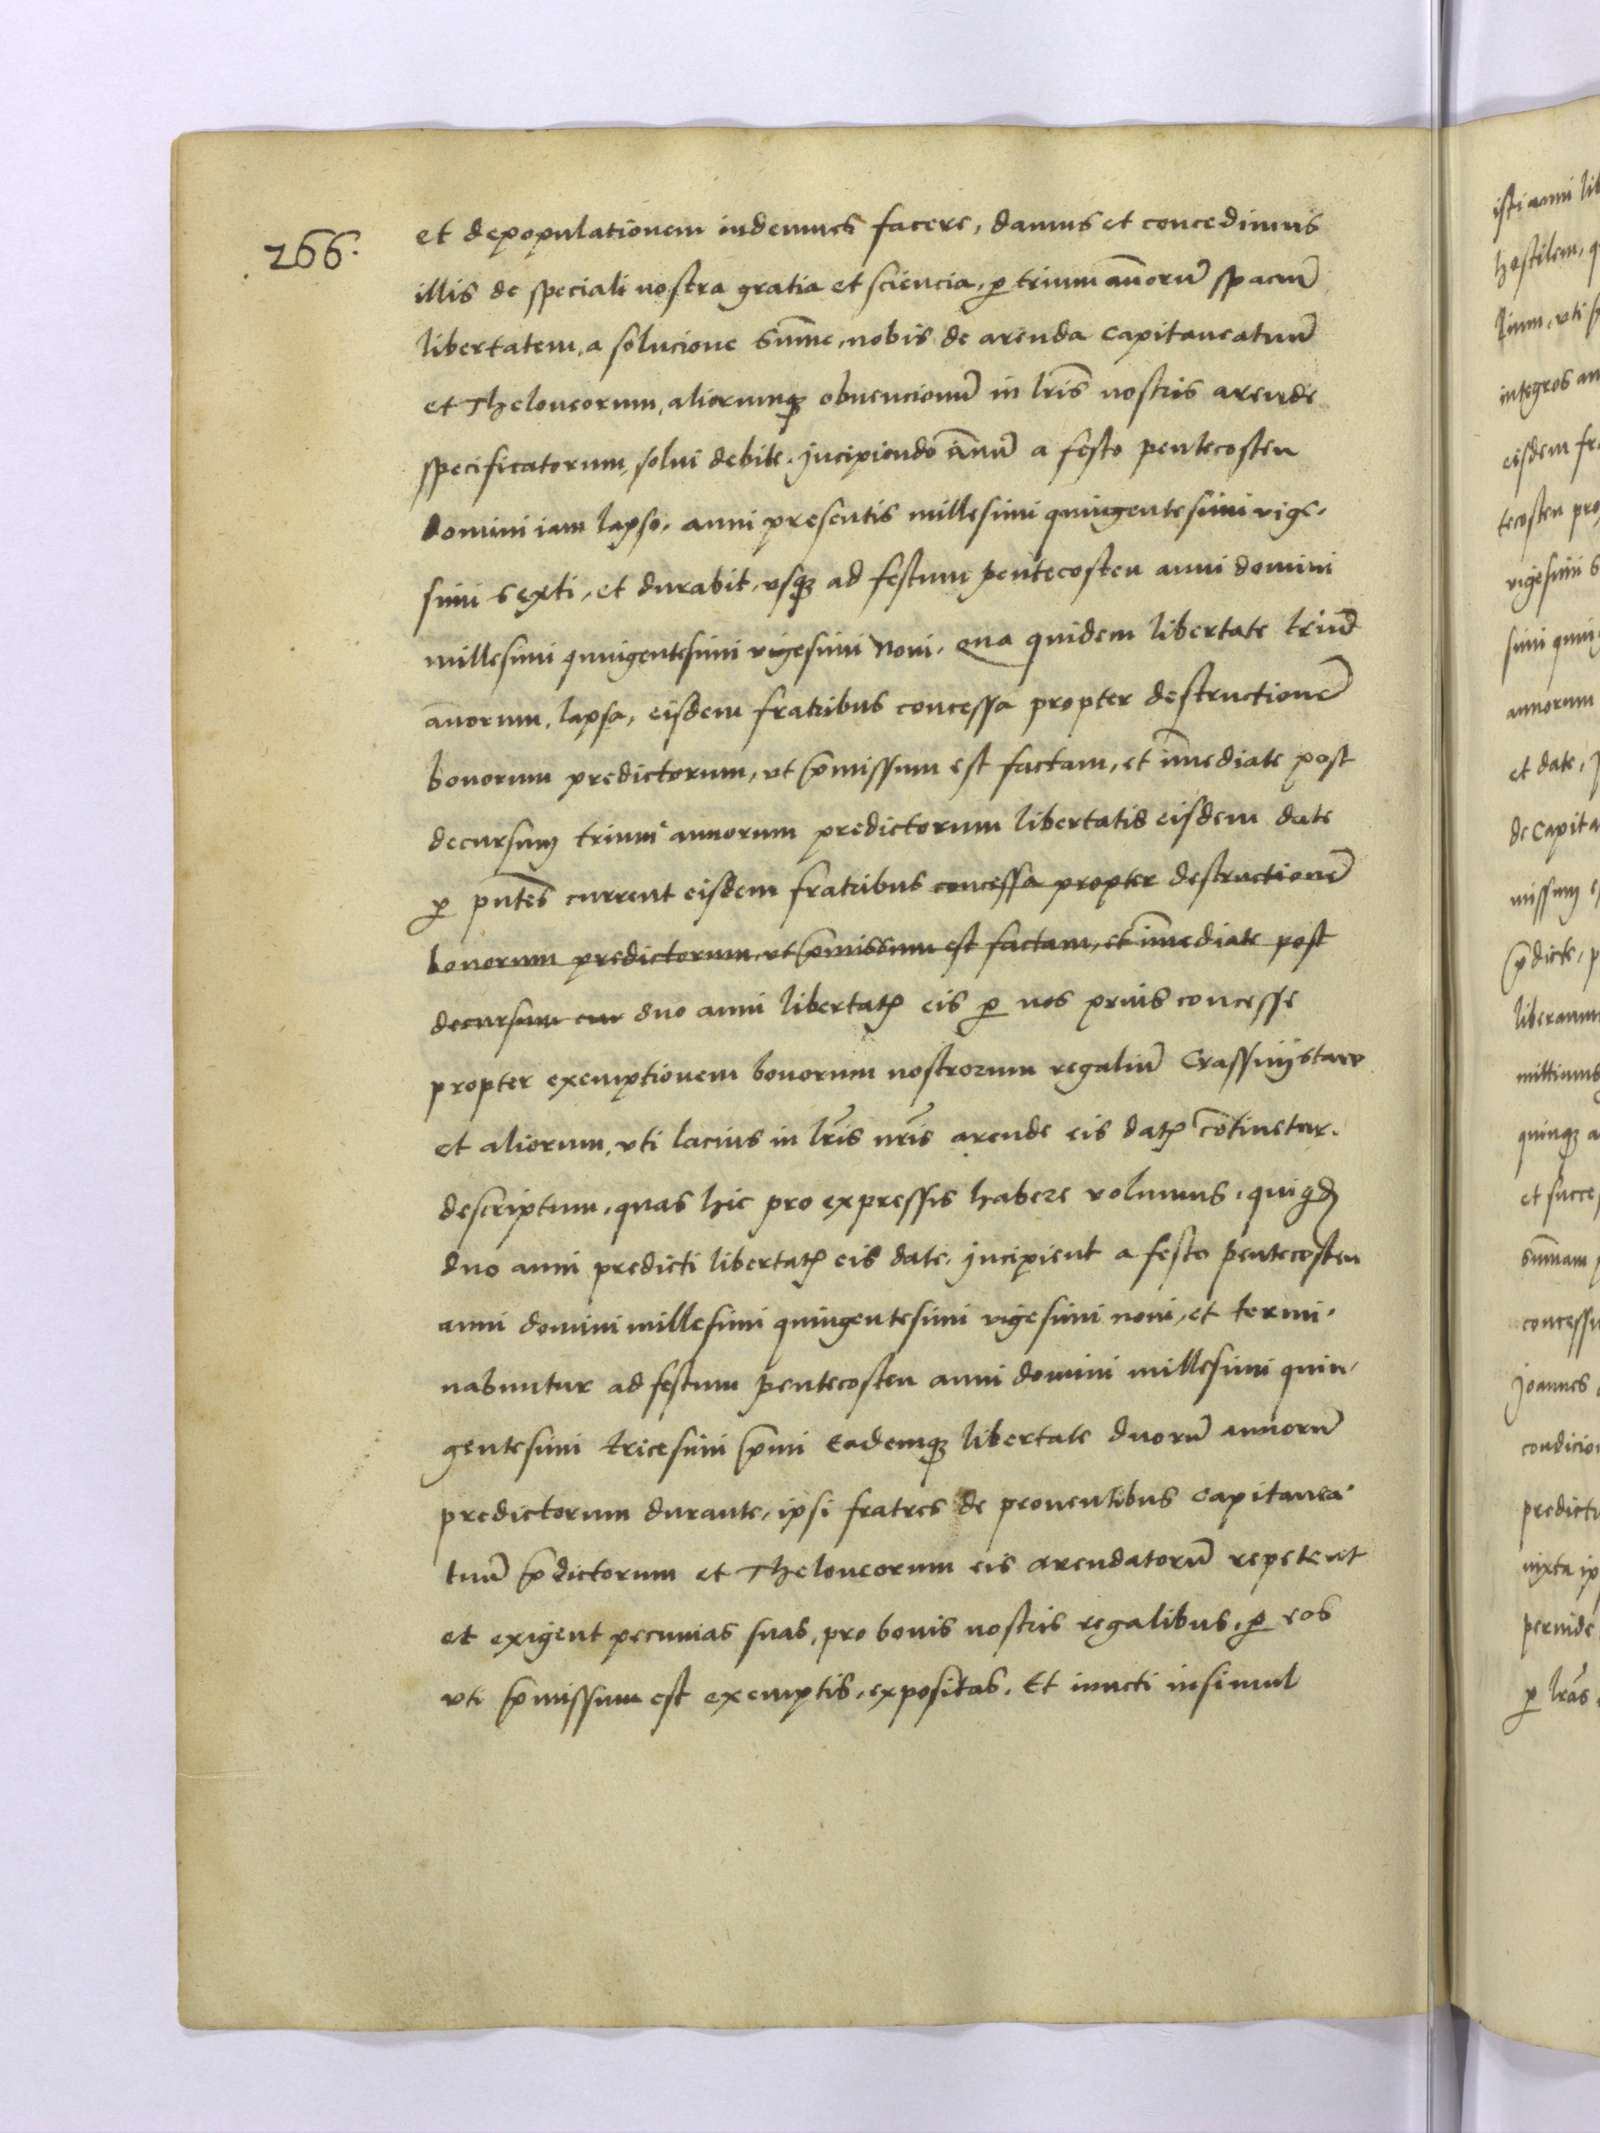 266.
et depopulationem indemnes facere, damus et concedimus
illis de speciali nostra gratia et sciencia, ꝑ trium annorū spaciū
libertatem, a solucione sūme, nobis de arenda Capitaneatuū
et Theloneorum, aliorumqꝫ obuencionū in lr̃is nostris arende
specificatorum, solui debite. Jncipiendo añnū a festo pentecosten
domini iam lapso, anni presentis millesimi quingentesimi vige-
simi sexti, et durabit, vsqꝫ ad festum pentecosten anni domini
millesimi quingentesimi vigesimi Noni. Qua quidem libertate triū
annorum, lapsa, eisdem fratribus concessa propter destructionē
bonorum predictorum, vt p̄missum est factam, et īmediate post
decursum trium annorum predictorum libertatis eisdem date
ꝑ pn̄tes current eisdem fratribus concessa propter destructionē
bonorum predictorum, vt p̄missum est factam, et īmediate post
decursum cur duo anni libertatꝭ eis ꝑ nos prius concesse
propter exemptionem bonorum nostrorum regaliū Crassnijstaw
et aliorum, vti lacius in lr̃is nr̃is arende eis datꝭ cōtinetur.
descriptum, quas hic pro expressis habere volumus, qui qd̃
duo anni predicti libertatꝭ eis date, Jncipient a festo pentecosten
anni domini millesimi quingentesimi vigesimi noni, et termi-
nabuntur ad festum pentecosten anni domini millesimi quin-
gentesimi tricesimi p̄mi Eademqꝫ libertate duorū annorū
predictorum durante, ipsi fratres de prouentibus Capitanea-
tuū p̄dictorum et Theloneorum eis arendatorū repetent
et exigent pecunias suas, pro bonis nostris regalibus, ꝑ eos
vti p̄missum est exemptis, expositas. Et iuncti insimul
isti anni lib
hostilem, q
integros an
eisdem fr
tecosten pro
vigesimi s
simi quin
annorum
et date,
de Capita
missum e
p̄dicte, p
quinqꝫ a
et succe
sūmam
Joannes
predict
iuxta ip
ꝑ lr̃as